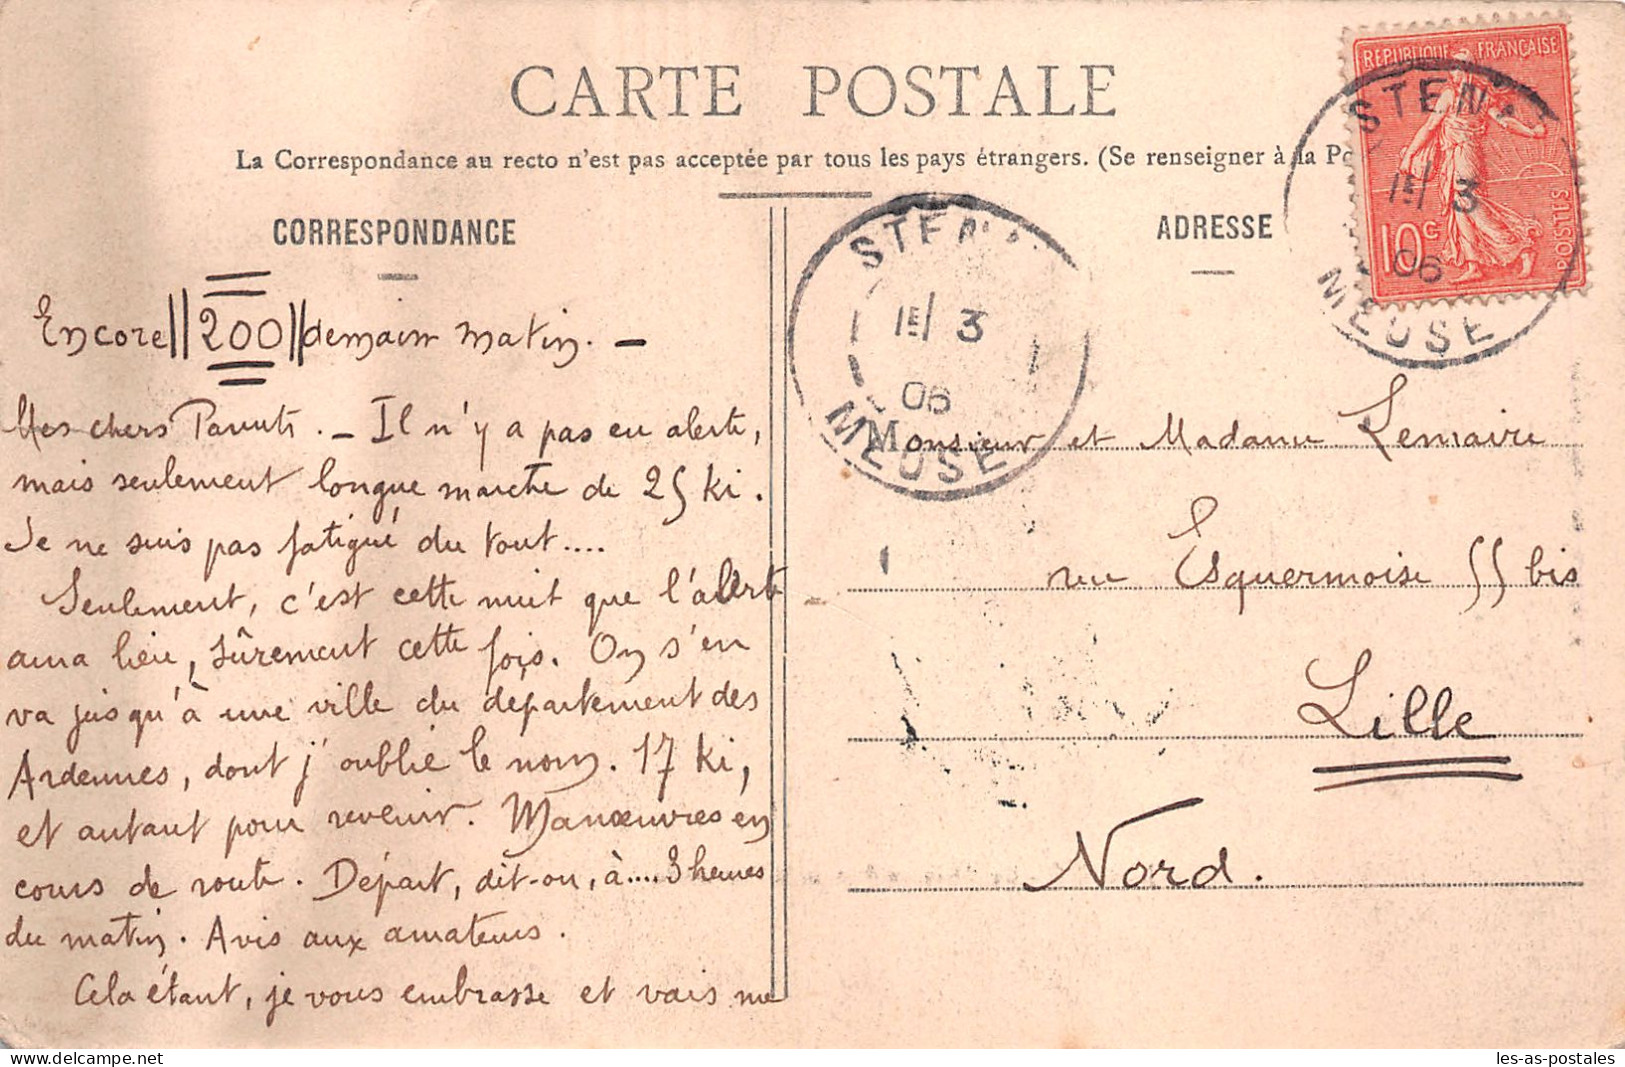 CARTE POSTALE
La Correspondance au recto n'est pas acceptée par tous les pays étrangers. (Se renseigner à la Po
CORRESPONDANCE
Encore 200 demain matin. -
Mes chers Parents. - Il n'y a pas eu alerte,
mais seulement longue marche de 25 ki.
Je ne suis pas fatigué du tout....
Seulement, c'est cette nuit que l'alerte
aura lieu, sûrement cette fois. On s'en
va jusqu'à une ville du département des
Ardennes, dont j'oublie le nom. 17 ki,
et autant pour revenir. Manœuvres en
cours de route. Départ, dit-on, à.... 3 heures
du matin. Avis aux amateurs.
Cela étant, je vous embrasse et vais me
ADRESSE
Monsieur et Madame Lemaire
rue Esquermoise 55 bis
Lille
Nord.
REPUBLIQUE FRANÇAISE
10c
POSTES
STENA
3
06
MEUSE
STENA
3
06
MEUSE
delcampe.net
les-as-postales